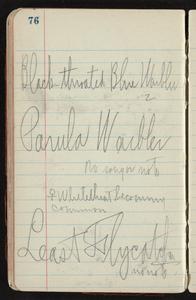 76
Black-throated Blue Warbler
2
Parula Warbler
No song or note
♀ Whitethroat becoming
common
Least Flycatcher
no note